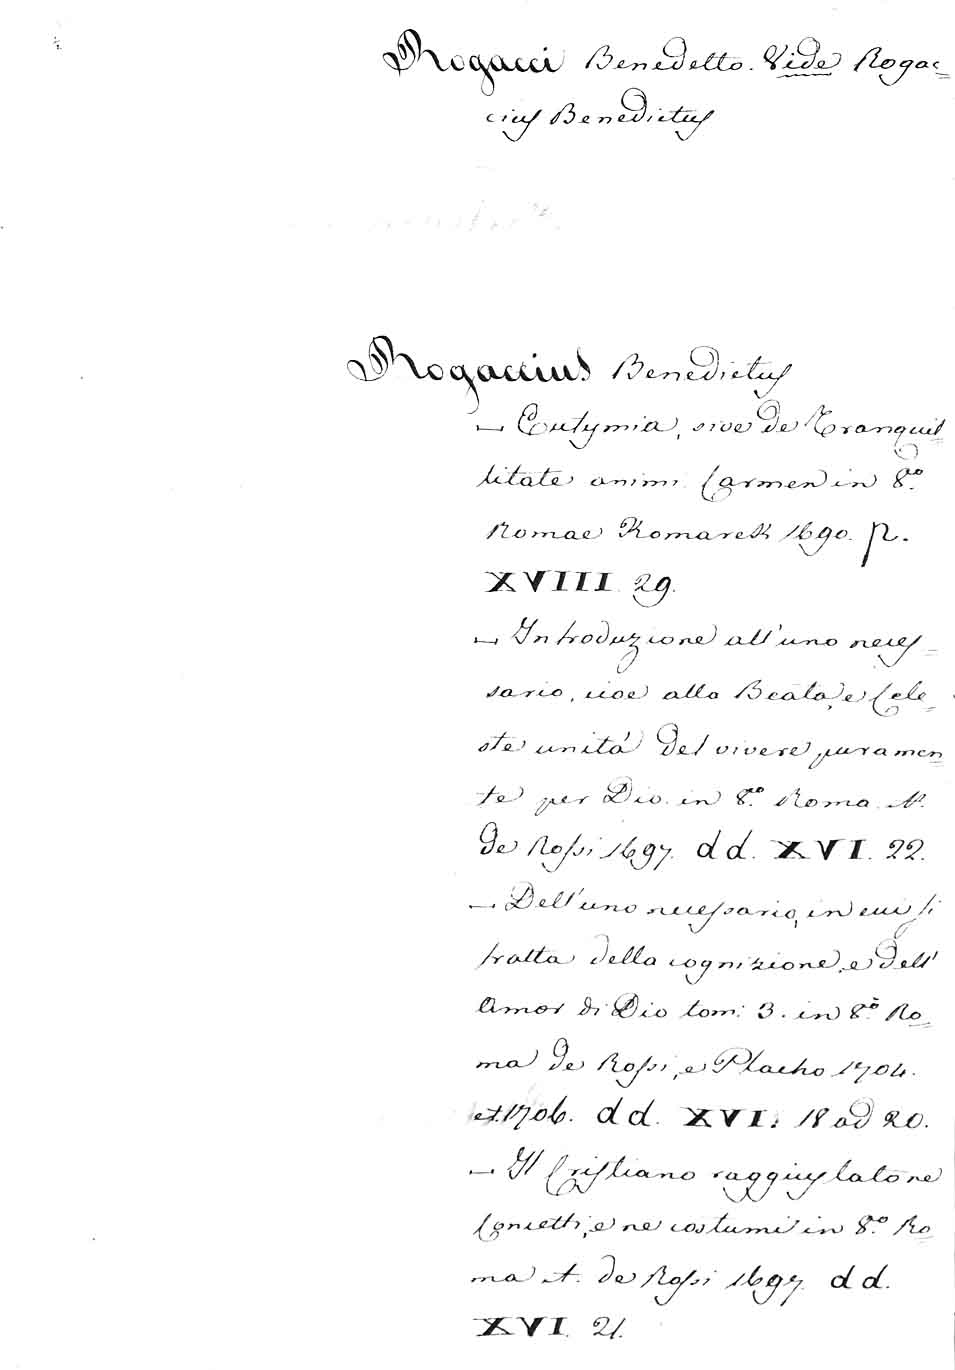 Rogacci Benedetto. Vide Rogac=
cius Benedictus
Rogaccius Benedictus
— Eutymia, sive de Tranquil=
litate animi Carmen in 8.º
Romae Komarek 1690. p.
XVIII. 29.
— Introduzione all'uno neces=
sario, cioe alla Beata, e Cele=
ste unitá del vivere puramen=
te per Dio. in 8.º Roma. A.
de Rossi 1697. dd. XVI. 22.
— Dell'uno necessario, in cui si
tratta della cognizione, e dell'
Amor di Dio tom: 3. in 8.º Ro=
ma de Rossi, e Placho 1704.
et 1706. dd. XVI. 18 ad 20.
— Il Cristiano raggiustato ne
Concetti, e ne costumi in 8.º Ro=
ma A. de Rossi 1697. dd.
XVI. 21.